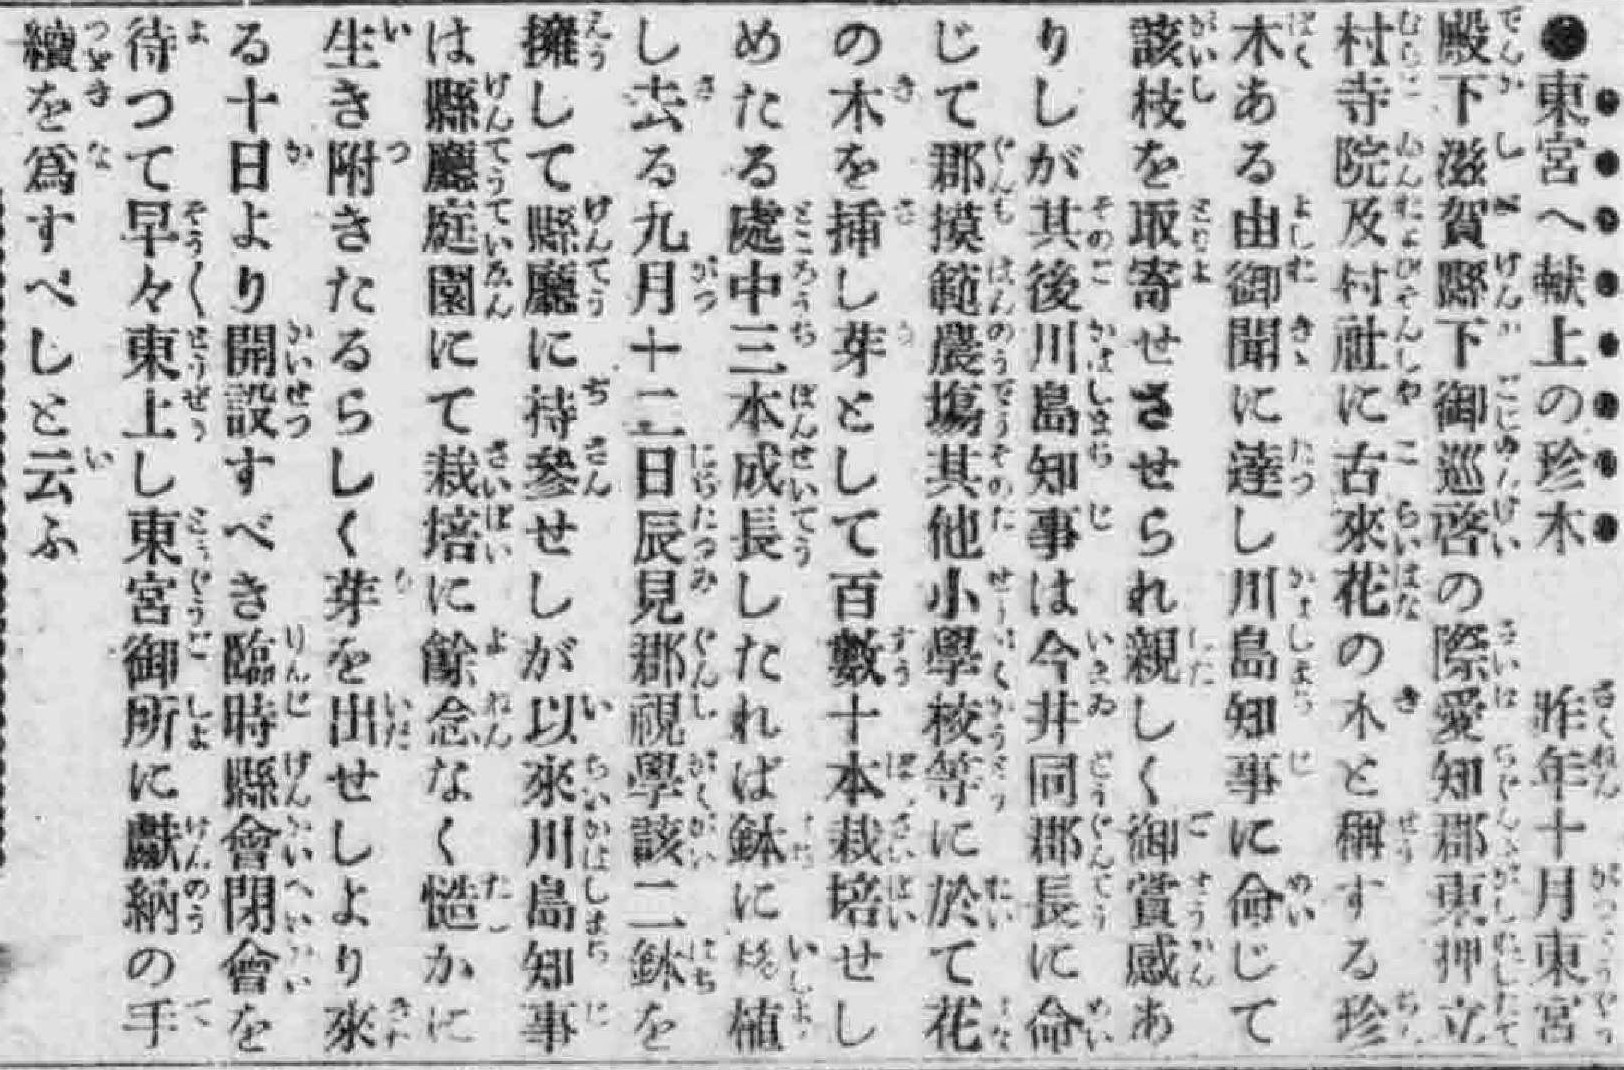 ●東宮へ献上の珍木　昨年十月東宮
殿下滋賀縣下御巡啓の際愛知郡東押立
村寺院及村社に古來花の木と稱する珍
木ある由御聞に達し川島知事に命じて
該枝を取寄せさせられ親しく御賞感あ
りしが其後川島知事は今井同郡長に命
じて郡摸範農塲其他小學校等に於て花
の木を挿し芽として百數十本栽培せし
めたる處中三本成長したれば鉢に移植
し去る九月十二日辰見郡視學該二鉢を
擁して縣廳に持參せしが以來川島知事
は縣廳庭園にて栽培に餘念なく慥かに
生き附きたるらしく芽を出せしより來
る十日より開設すべき臨時縣會閉會を
待つて早々東上し東宮御所に獻納の手
續を爲すべしと云ふ